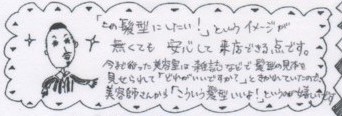 「この髪型にしたい！」というイメージが
無くても安心して来店できる点です。
今まで行った美容室は雑誌などで髪型の見本を
見せられて「どれがいいですか？」ときかれていたので、
美容師さんから「こういう髪型いいよ！」というのが嬉しいです